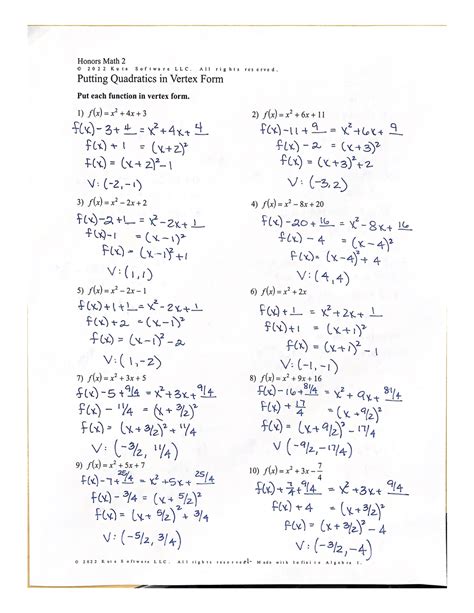 Honors Math 2
© 2022 Kuta Software LLC. All rights reserved.
Putting Quadratics in Vertex Form
Put each function in vertex form.
1) f(x) = x² + 4x + 3
f(x) - 3 + 4 = x² + 4x + 4
f(x) + 1 = (x + 2)²
f(x) = (x+2)² - 1
V: (-2, -1)
2) f(x) = x² + 6x + 11
f(x) - 11 + 9 = x² + 6x + 9
f(x) - 2 = (x + 3)²
f(x) = (x+3)² + 2
V: (-3, 2)
3) f(x) = x² - 2x + 2
f(x) - 2 + 1 = x² - 2x + 1
f(x) - 1 = (x - 1)²
f(x) = (x-1)² + 1
V: (1, 1)
4) f(x) = x² - 8x + 20
f(x) - 20 + 16 = x² - 8x + 16
f(x) - 4 = (x - 4)²
f(x) = (x-4)² + 4
V: (4, 4)
5) f(x) = x² - 2x - 1
f(x) + 1 + 1 = x² - 2x + 1
f(x) + 2 = (x - 1)²
f(x) = (x-1)² - 2
V: (1, -2)
6) f(x) = x² + 2x
f(x) + 1 = x² + 2x + 1
f(x) + 1 = (x + 1)²
f(x) = (x+1)² - 1
V: (-1, -1)
7) f(x) = x² + 3x + 5
f(x) - 5 + 9/4 = x² + 3x + 9/4
f(x) - 11/4 = (x + 3/2)²
f(x) = (x + 3/2)² + 11/4
V: (-3/2, 11/4)
8) f(x) = x² + 9x + 16
f(x) - 16 + 81/4 = x² + 9x + 81/4
f(x) + 17/4 = (x + 9/2)²
f(x) = (x + 9/2)² - 17/4
V (-9/2, -17/4)
9) f(x) = x² + 5x + 7
f(x) - 7 + 25/4 = x² + 5x + 25/4
f(x) - 3/4 = (x + 5/2)²
f(x) = (x + 5/2)² + 3/4
V: (-5/2, 3/4)
10) f(x) = x² + 3x - 7/4
f(x) + 7/4 + 9/4 = x² + 3x + 9/4
f(x) + 4 = (x + 3/2)²
f(x) = (x + 3/2)² - 4
V: (-3/2, -4)
© 2022 Kuta Software LLC. All rights reserved. Made with Infinite Algebra 1.